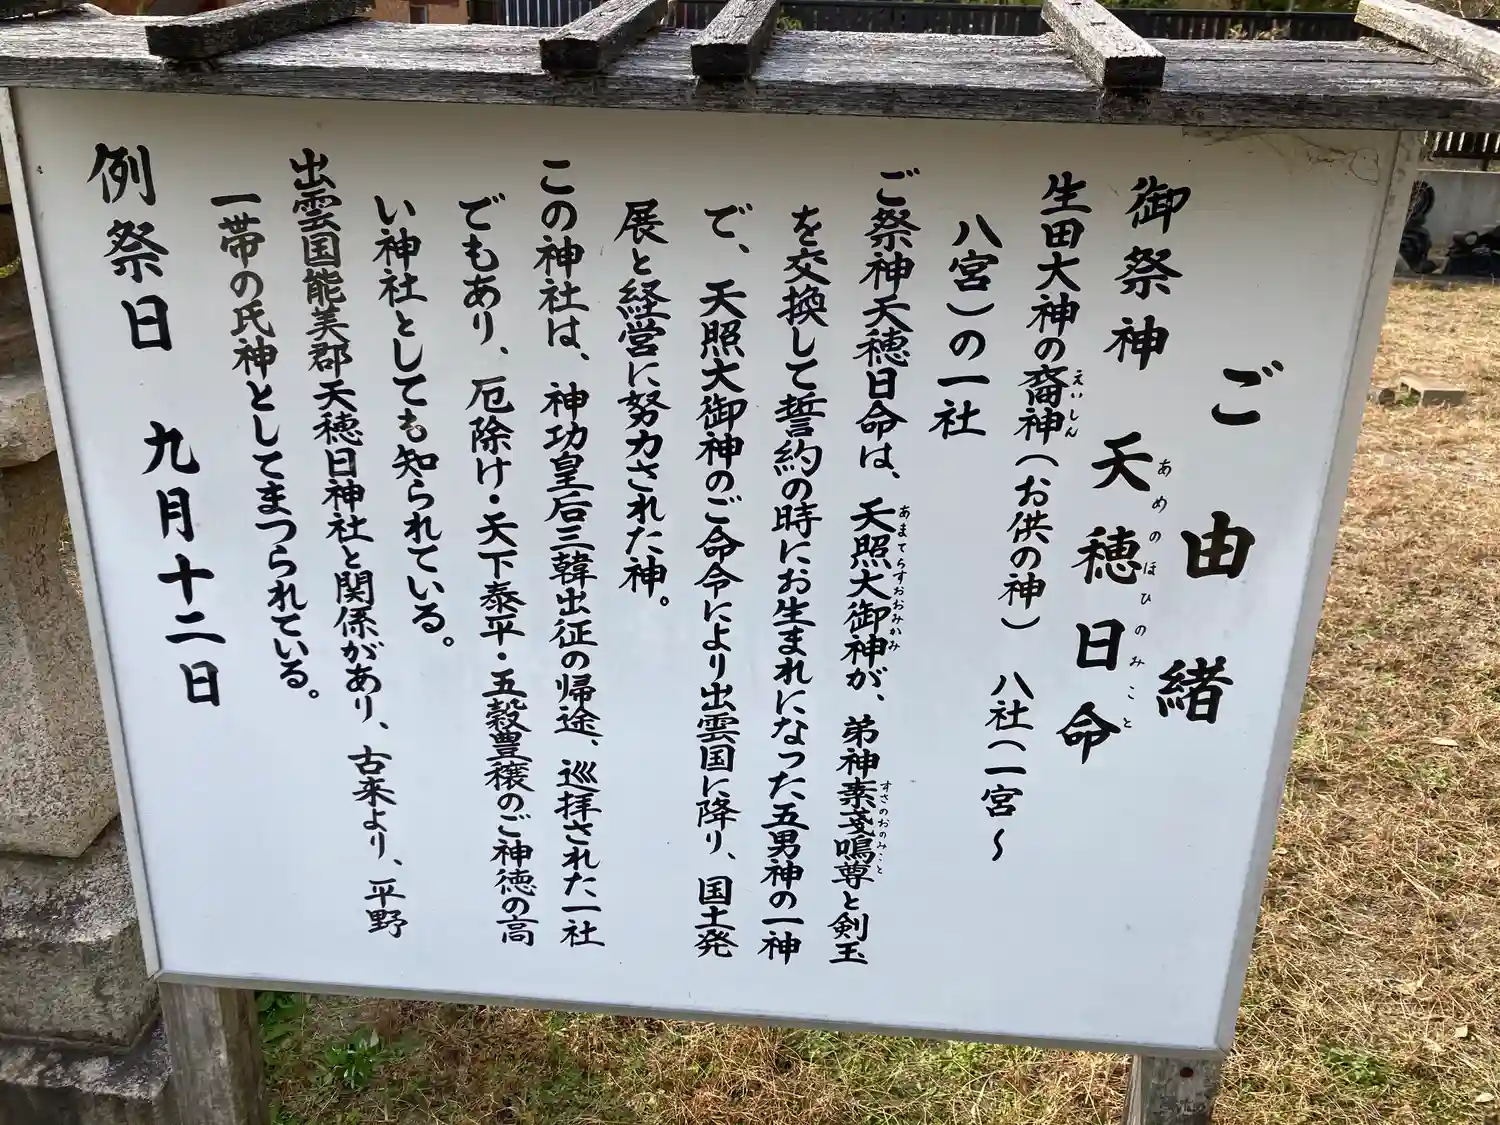 ご由緒
御祭神 天穂日命
あめのほひのみこと
生田大神の裔神(お供の神) 八社(一宮～
えいしん
八宮)の一社
ご祭神天穂日命は、天照大御神が、弟神素戔嗚尊と剣玉
あまてらすおおみかみ
すさのおのみこと
を交換して誓約の時にお生まれになった五男神の一神
で、天照大御神のご命令により出雲国に降り、国土発
展と経営に努力された神。
この神社は、神功皇后三韓出征の帰途、巡拝された一社
でもあり、厄除け・天下泰平・五穀豊穣のご神徳の高
い神社としても知られている。
出雲国能美郡天穂日神社と関係があり、古来より、平野
一帯の氏神としてまつられている。
例祭日 九月十二日